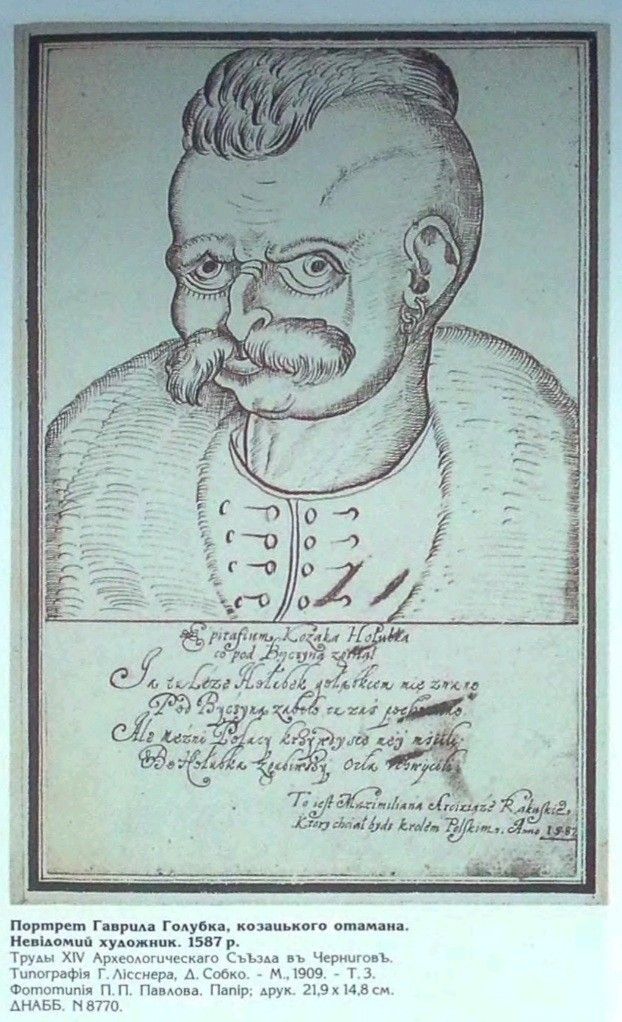 Epitafium Kozaka Hołubka
co pod Byczyną zginął
Ja tu Leżę Hołubek gołąbkiem nie
Pod Byczyną zabito tu zaś
Ale mężni Polacy krzywdy
Bo Hołubka Orła
To jest Maximiliana Arcixiążę Rakuskie,
Ktory chciał bydz krolem Polskim. Anno 1587
Портрет Гаврила Голубка, козацького отамана.
Невідомий художник. 1587 р.
Труды XIV Археологическаго Съѣзда въ Черниговѣ.
Типографія Г. Лісснера, Д. Собко. - М., 1909. - Т. 3.
Фототипія П. П. Павлова. Папір; друк. 21,9 x 14,8 см.
ДНАББ. N 8770.